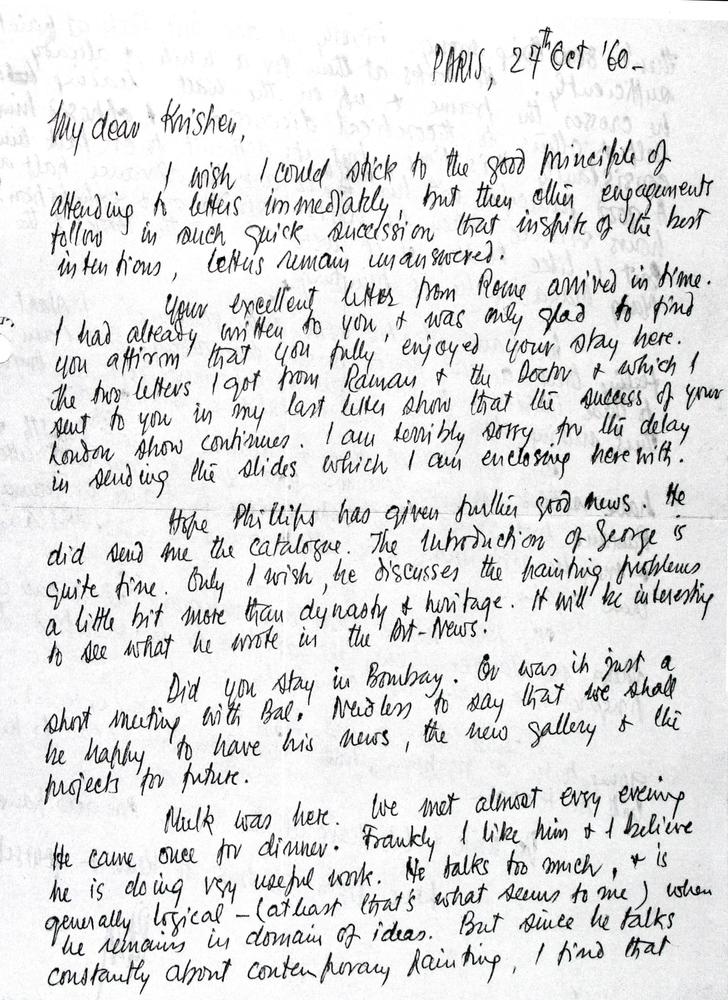 PARIS, 27th Oct '60-
My dear Krishen,
I wish I could stick to the good principle of
attending to letters immediately, but then other engagements
follow in such quick sucession that inspite of the best
intentions, letters remain unanswered.
Your excellent letter from Rome arrived in time.
I had already written to you, & was only glad to find
you affirm that you fully enjoyed your stay here.
The two letters I got from Raman & the Doctor & which I
sent to you in my last letter show that the success of your
London show continues. I am terribly sorry for the delay
in sending the slides which I am enclosing herewith.
Hope Phillips has given further good news. He
did send me the catalogue. The Introduction of George is
quite fine. Only I wish, he discusses the painting problems
a little bit more than dynasty & heritage. It will be interesting
to see what he wrote in the Art-News.
Did you stay in Bombay. Or was it just a
short meeting with Bal. Needless to say that we shall
be happy to have his news, the new gallery & the
projects for future.
Mulk was here. We met almost evry evening
He came once for dinner. Frankly I like him & I believe
he is doing vry useful work. He talks too much, & is
generally logical - (atleast that's what seems to me) when
he remains in domain of ideas. But since he talks
constantly about contemporary Painting, I find that